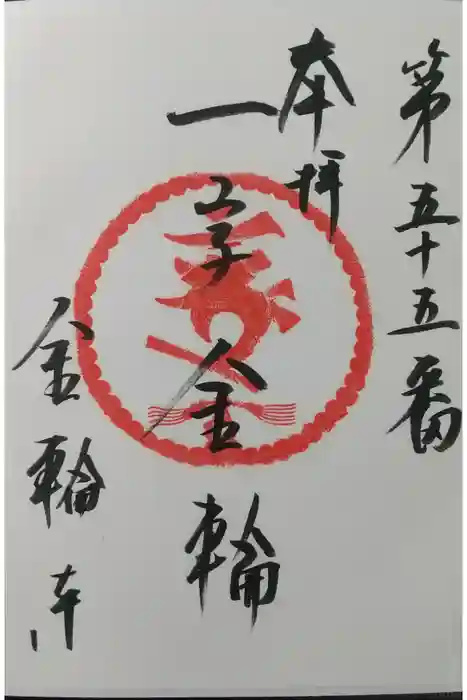 第五十五番
本拝
一字金輪
金輪寺